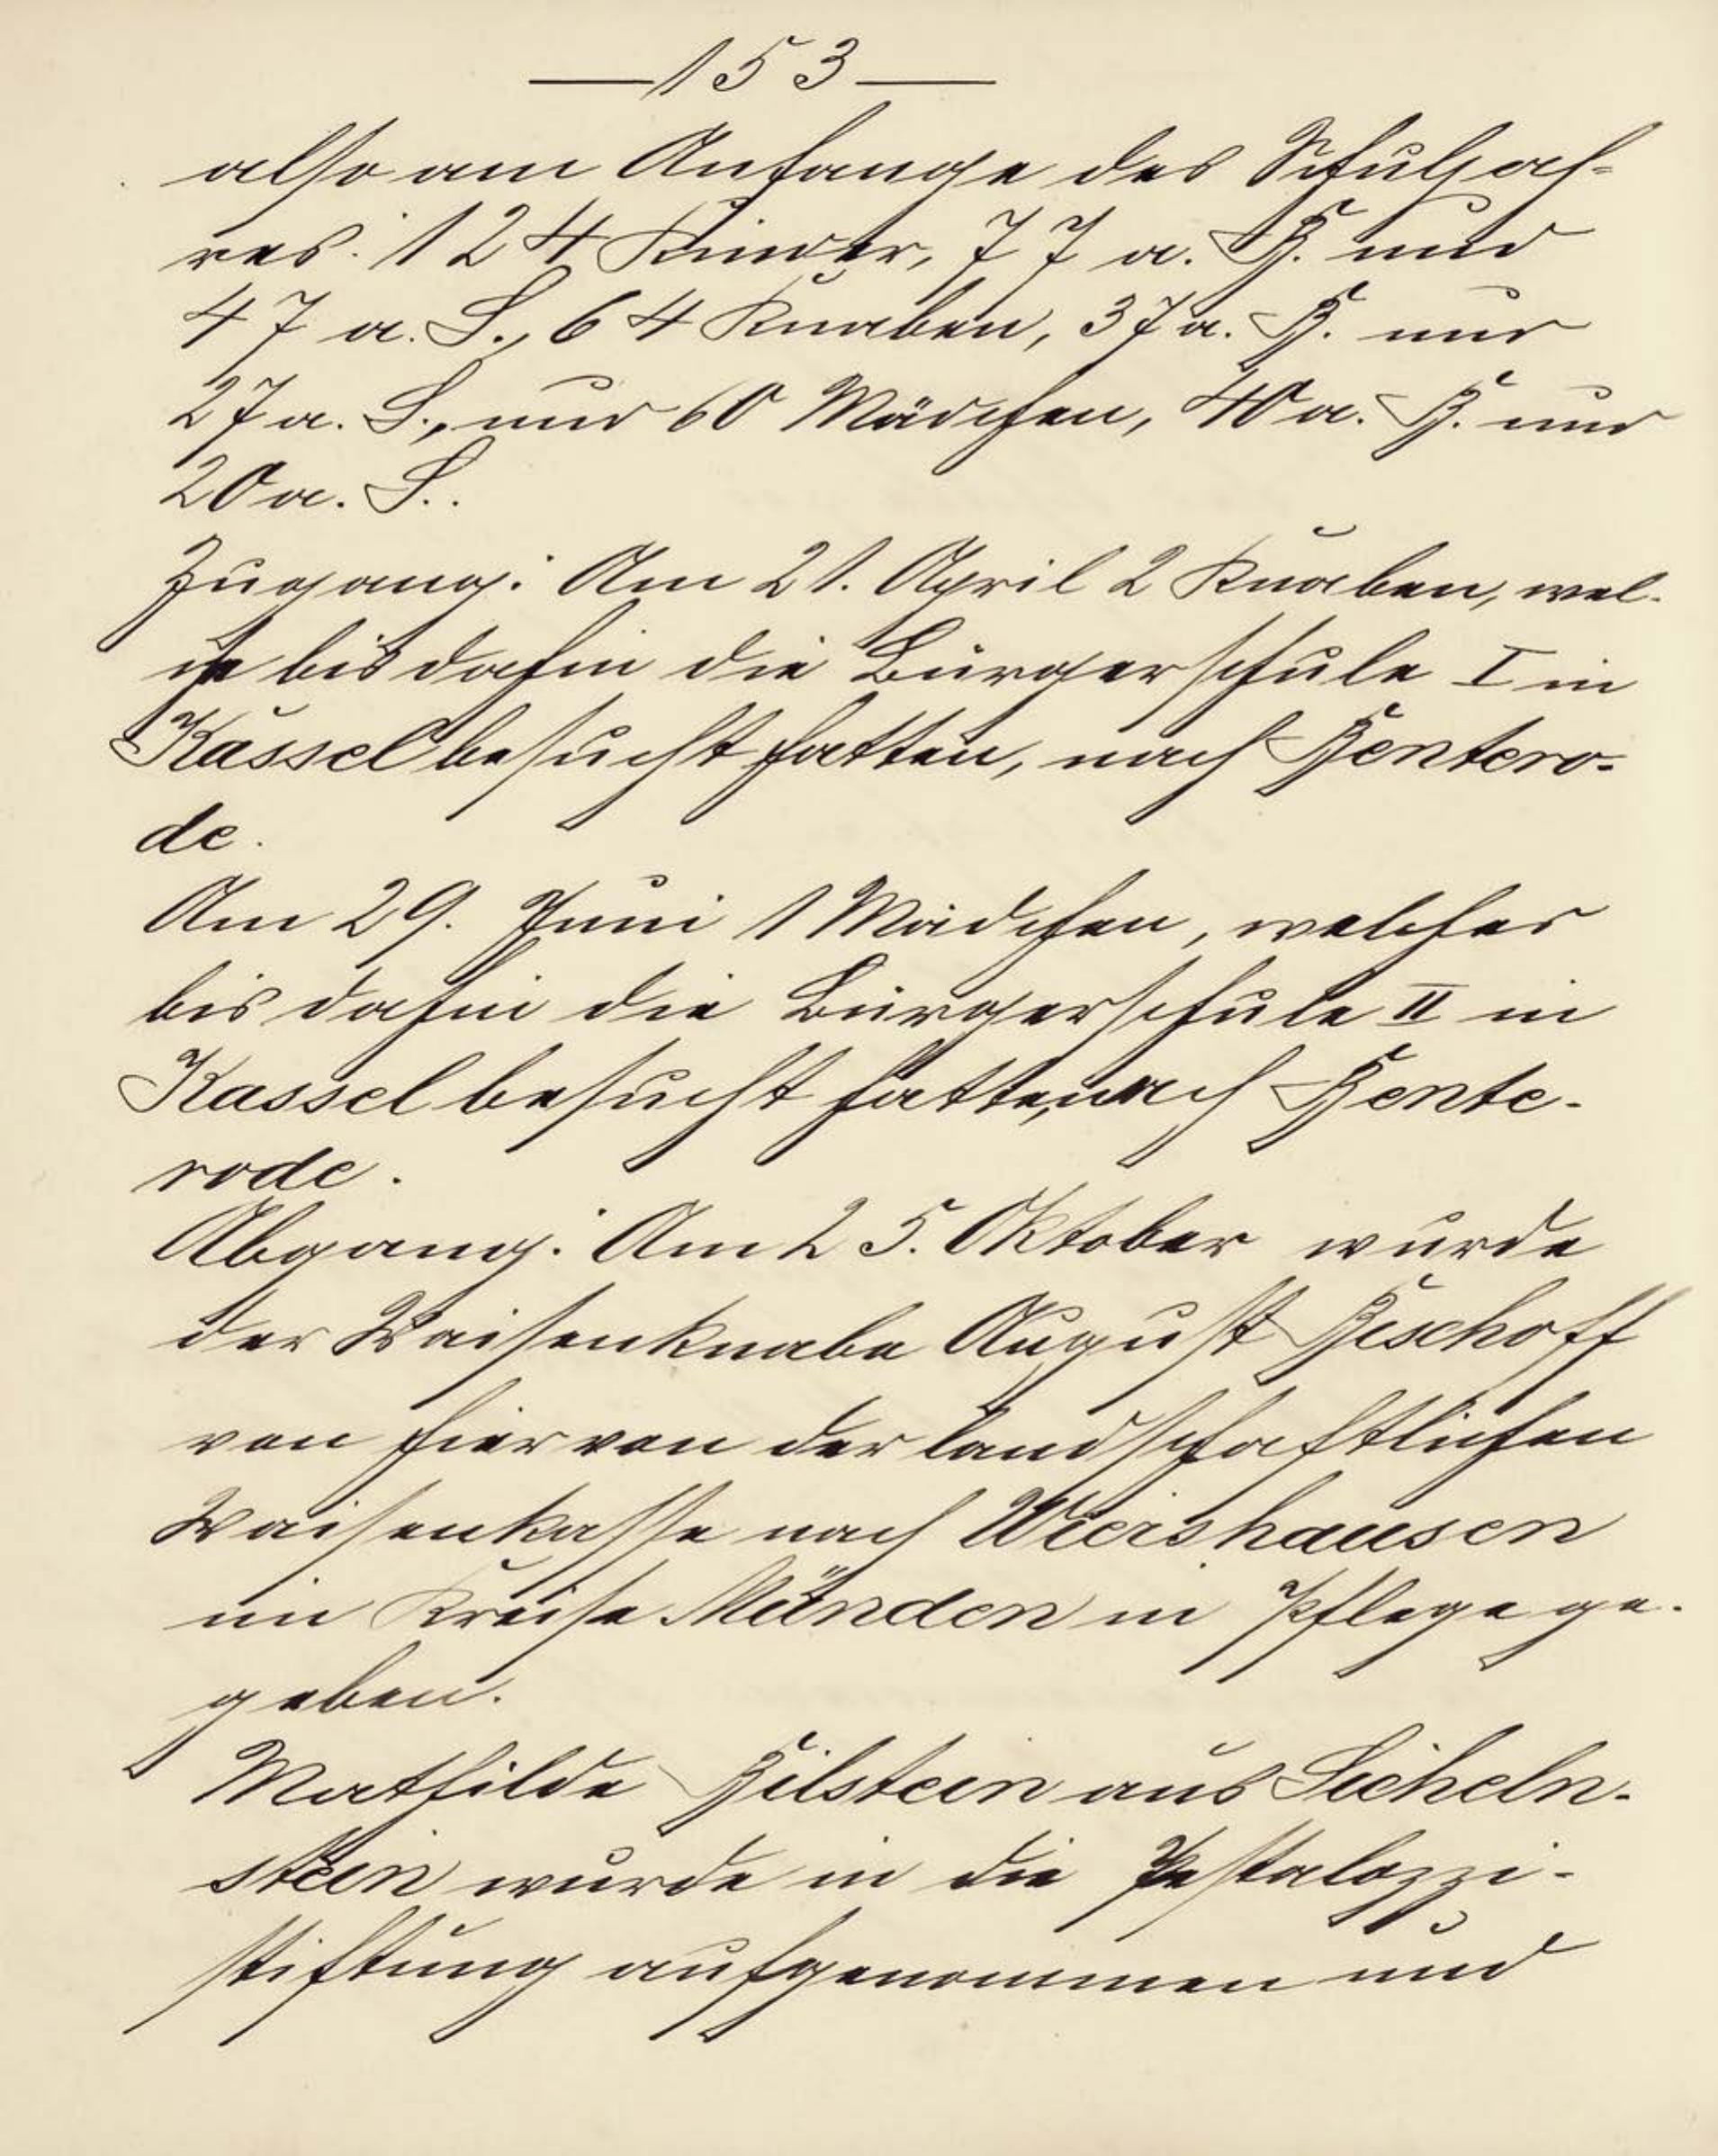 —153—
also am Anfange des Schuljah-
res: 124 Kinder, 77 a. B. und
47 a. S., 64 Knaben, 37 a. B. und
27 a. S., und 60 Mädchen, 40 a. B. und
20 a. S..
Zugang: Am 21. April 2 Knaben, wel-
che bis dahin die Bürgerschule I in
Kassel besucht hatten, nach Bentero-
de.
Am 29. Juni 1 Mädchen, welches
bis dahin die Bürgerschule II in
Kassel besucht hatte, nach Bente-
rode.
Abgang: Am 25. Oktober wurde
der Waisenknabe August Bischoff
von hier von der landschaftlichen
Waisenkasse nach Wiershausen
im Kreise Münden in Pflege ge-
geben.
Mathilde Bilstein aus Sicheln-
stein wurde in die Pestalozzi-
stiftung aufgenommen und